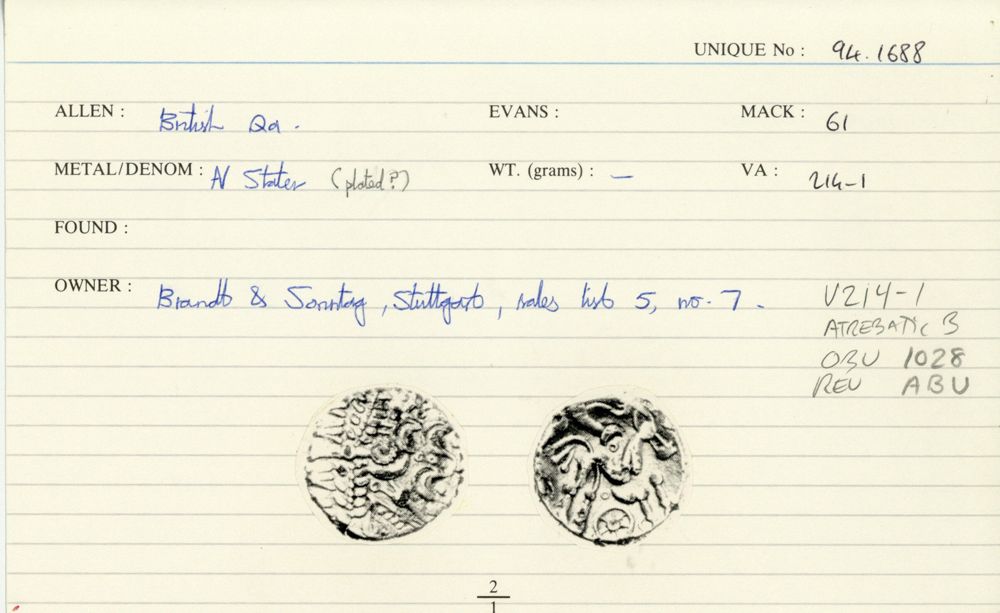 UNIQUE No : 94.1688
ALLEN : British Qa. EVANS : MACK : 61
METAL/DENOM : AV Stater (plated?) WT. (grams) : — VA : 214-1
FOUND :
OWNER : Brandt & Sonntag, Stuttgart, sales list 5, no. 7.
V214-1
ATREBATIC B
OBV 1028
REV ABU
2
1